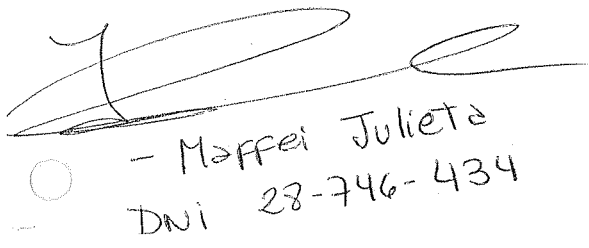 - Maffei Julieta
DNi 28-746-434